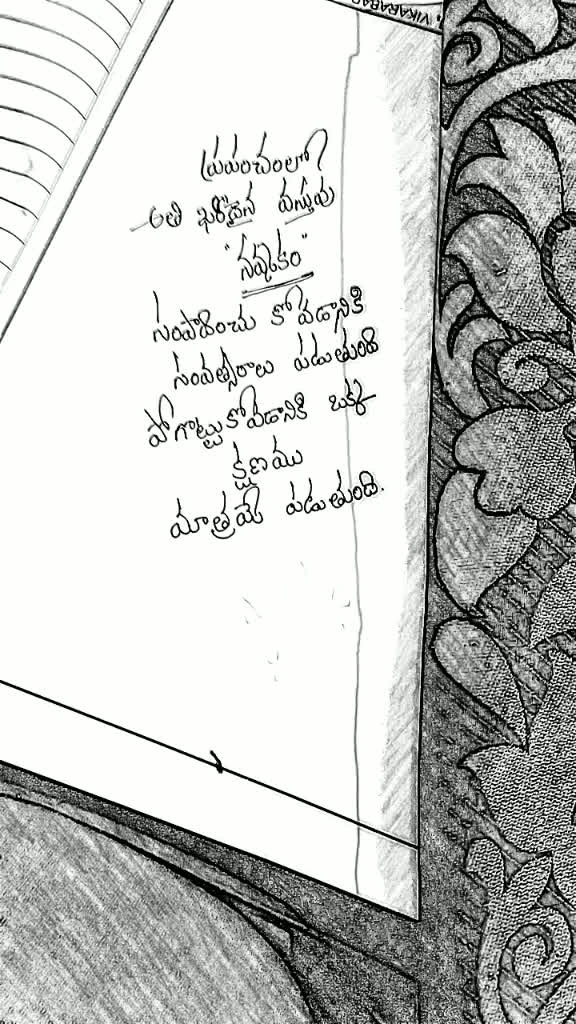 VIKARABAD
ప్రపంచంలో
అతి ఖరీదైన వస్తువు
"నమ్మకం"
సంపాదించు కోవడానికి
సంవత్సరాలు పడుతుంది
పోగొట్టుకోవడానికి ఒక్క
క్షణము
మాత్రమే పడుతుంది.